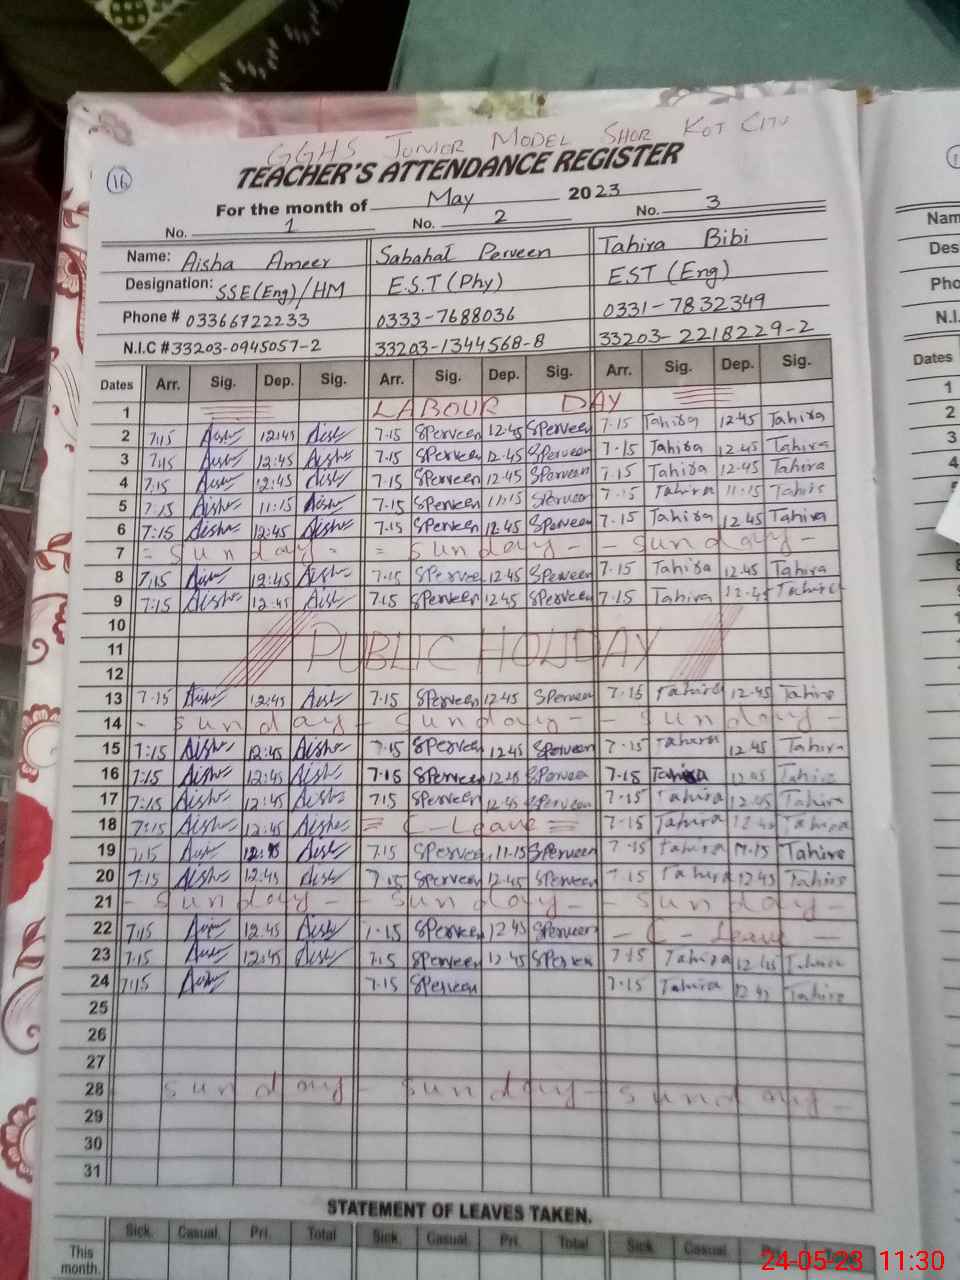 GGHS JUNIOR MODEL SHOR KOT CITY
16
TEACHER'S ATTENDANCE REGISTER
For the month of May 2023
No. 1 No. 2 No. 3
Name: Aisha Ameer Sabahat Perveen Tahira Bibi
Designation: SSE(Eng)/HM E.S.T (Phy) EST (Eng)
Phone # 03366722233 0333-7688036 0331-7832349
N.I.C # 33203-0945057-2 33203-1344568-8 33203-2218229-2
Dates Arr. Sig. Dep. Sig. Arr. Sig. Dep. Sig. Arr. Sig. Dep. Sig.
1 LABOUR DAY
2 7:15 Aisha 12:45 Aisha 7.15 SPerveen 12.45 SPerveen 7.15 Tahira 12.45 Tahira
3 7:15 Aisha 12:45 Aisha 7.15 SPerveen 12.45 SPerveen 7.15 Tahira 12.45 Tahira
4 7:15 Aisha 12:45 Aisha 7.15 SPerveen 12.45 SPerveen 7.15 Tahira 12.45 Tahira
5 7:15 Aisha 11:15 Aisha 7.15 SPerveen 11.15 SPerveen 7.15 Tahira 11.15 Tahira
6 7:15 Aisha 12:45 Aisha 7.15 SPerveen 12.45 SPerveen 7.15 Tahira 12.45 Tahira
7 = Sunday - = Sunday - - Sunday -
8 7:15 Aisha 12:45 Aisha 7.15 SPerveen 12.45 SPerveen 7.15 Tahira 12.45 Tahira
9 7:15 Aisha 12:45 Aisha 7.15 SPerveen 12.45 SPerveen 7.15 Tahira 12.45 Tahira
10
11 PUBLIC HOLIDAY
12
13 7.15 Aisha 12:45 Aisha 7.15 SPerveen 12.45 SPerveen 7.15 Tahira 12.45 Tahira
14 - Sunday - Sunday - - Sunday -
15 7:15 Aisha 12:45 Aisha 7.15 SPerveen 12.45 SPerveen 7.15 Tahira 12.45 Tahira
16 7:15 Aisha 12:45 Aisha 7.15 SPerveen 12.45 SPerveen 7.15 Tahira 12.45 Tahira
17 7:15 Aisha 12:45 Aisha 7.15 SPerveen 12.45 SPerveen 7.15 Tahira 12.45 Tahira
18 7:15 Aisha 12:45 Aisha C-Leave 7.15 Tahira 12.45 Tahira
19 7:15 Aisha Aisha 7.15 SPerveen 11.15 SPerveen 7.15 Tahira 11.15 Tahira
20 7:15 Aisha 12:45 Aisha 7.15 SPerveen 12.45 SPerveen 7.15 Tahira 12.45 Tahira
21 - Sunday - - Sunday - - Sunday -
22 7:15 Aisha 12.45 Aisha 7.15 SPerveen 12.45 SPerveen - C - Leave -
23 7:15 Aisha 12:45 Aisha 7.15 SPerveen 12.45 SPerveen 7.15 Tahira 12.45 Tahira
24 7:15 Aisha 7.15 SPerveen 7.15 Tahira 12.45 Tahira
25
26
27
28 Sunday - Sunday - Sunday -
29
30
31
STATEMENT OF LEAVES TAKEN.
Sick. Casual. Pri. Total Sick. Casual. Pri. Total Sick. Casual.
This
month.
Nam
Des
Pho
N.I.
Dates
1
2
3
4
24-05-23 11:30